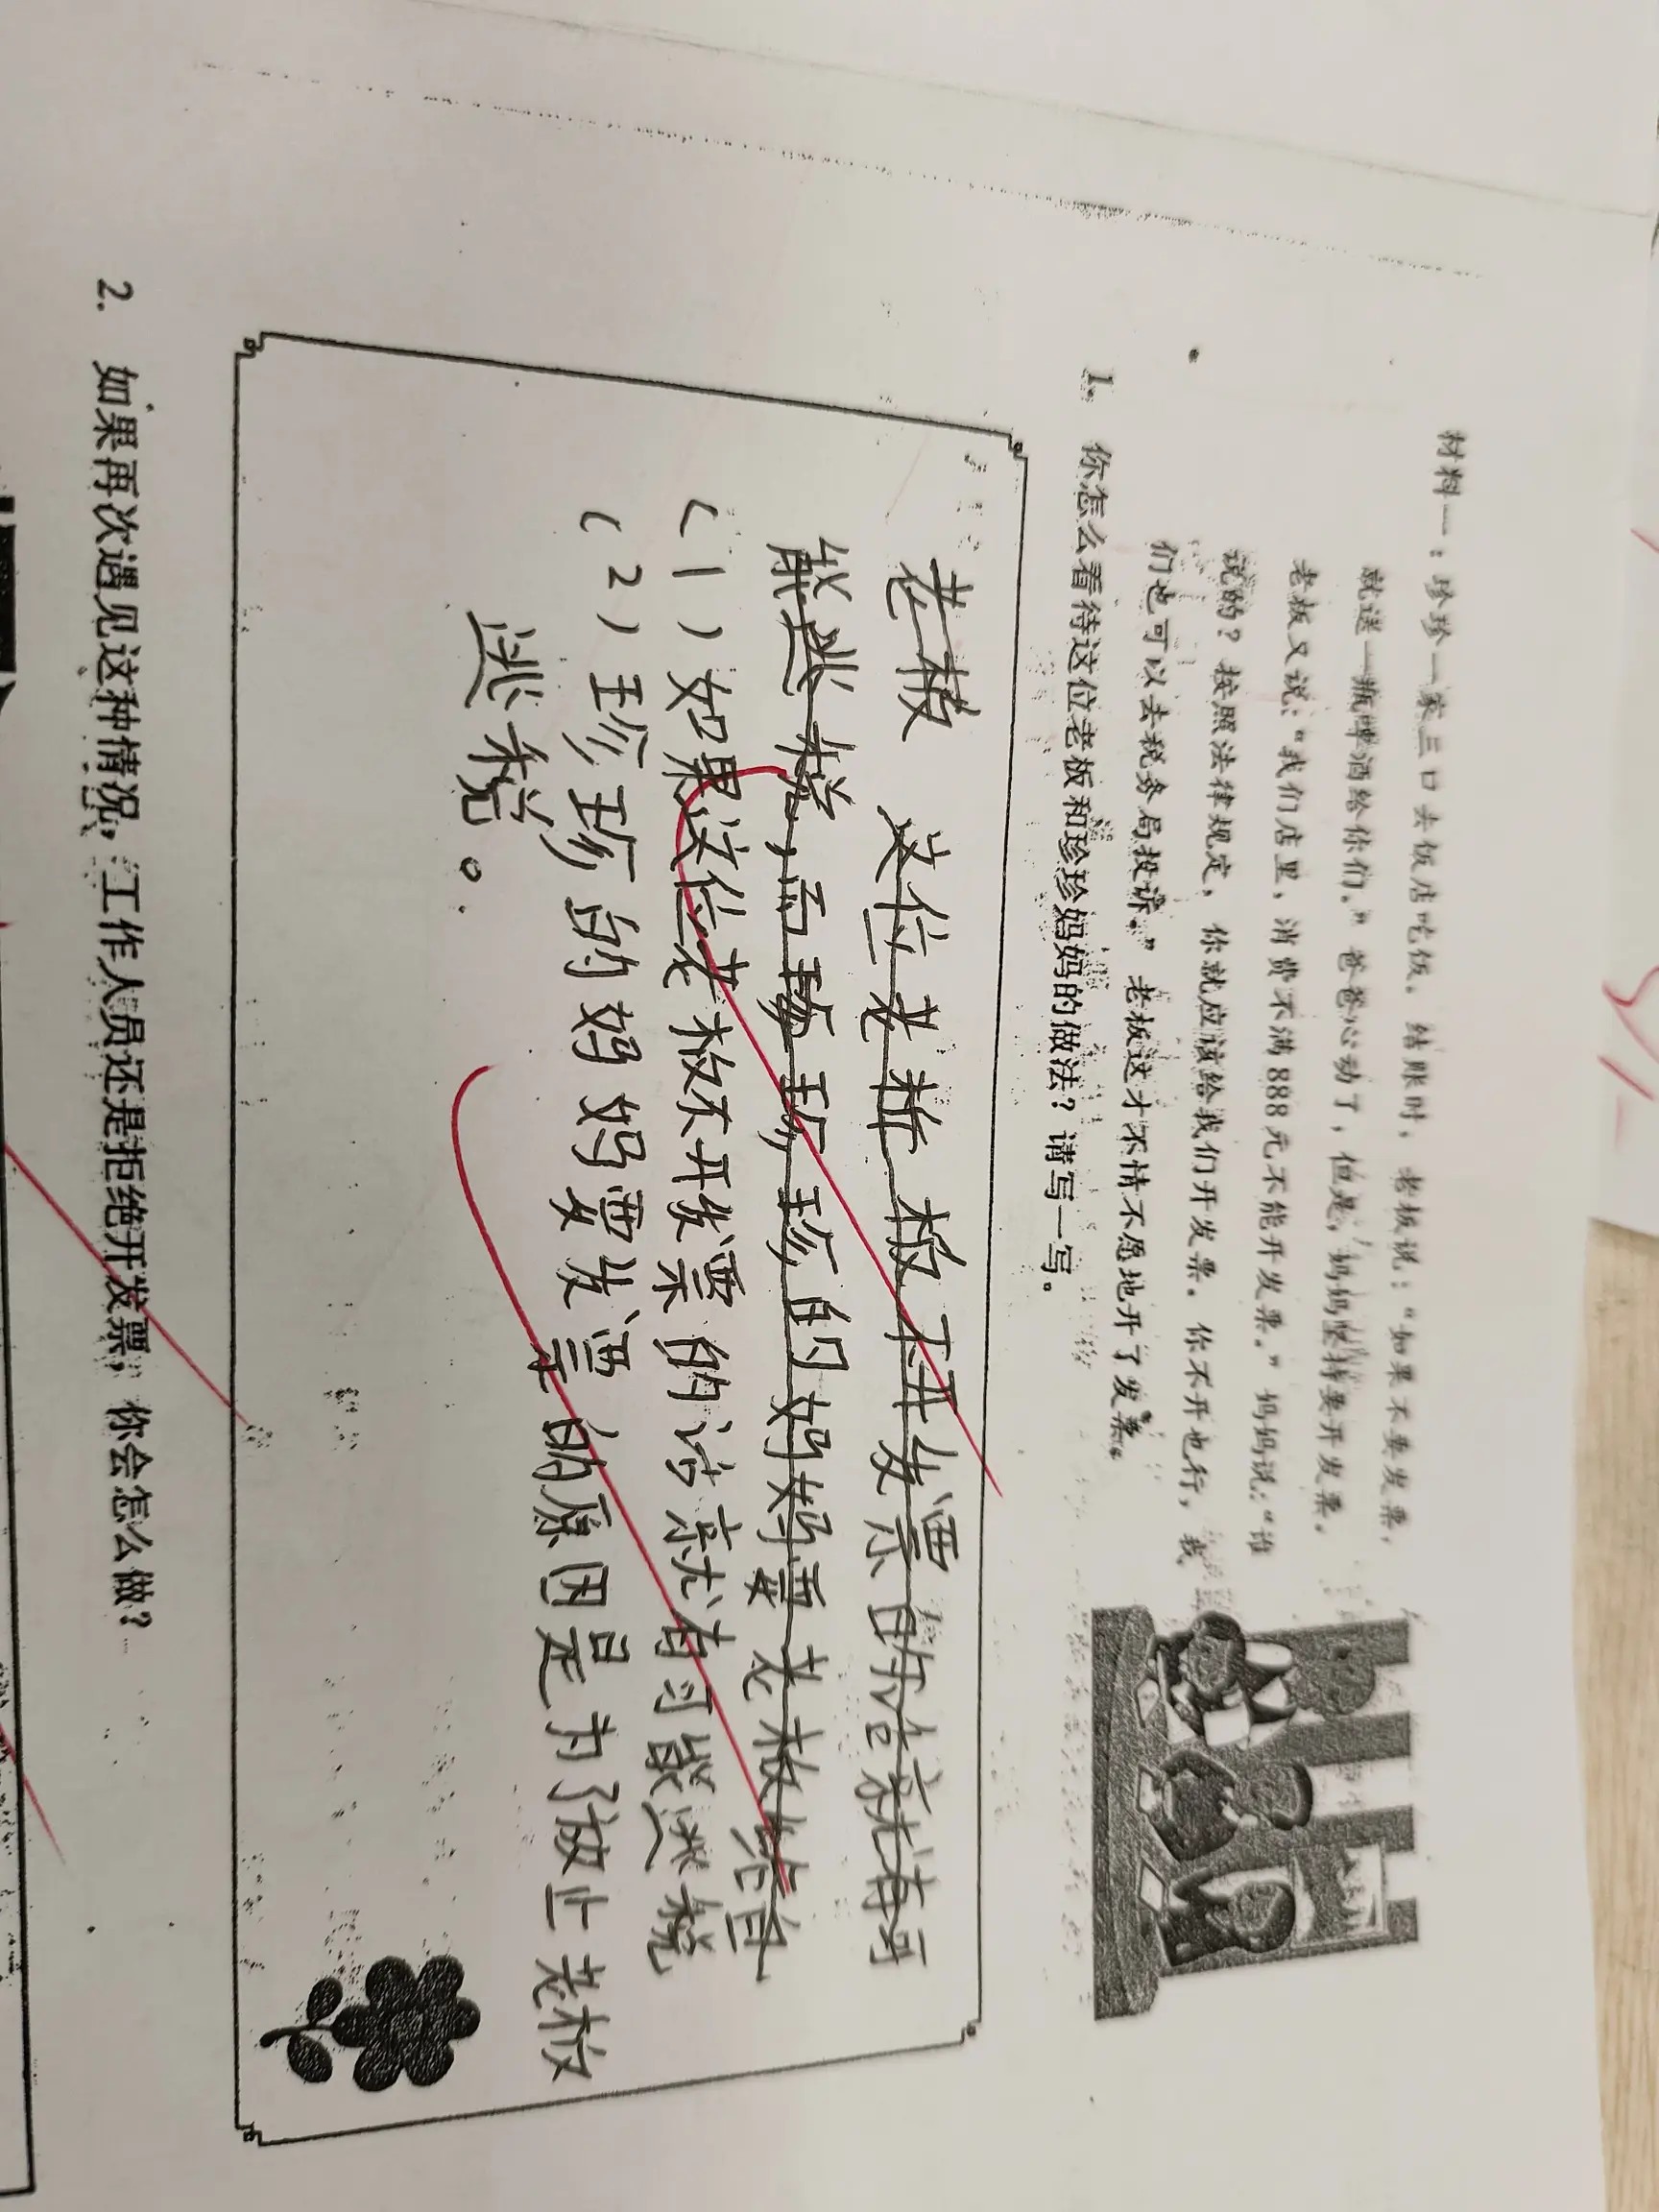 材料一：珍珍一家三口去饭店吃饭。结账时，老板说：“如果不要发票，
就送一瓶啤酒给你们。”爸爸心动了，但是，妈妈坚持要开发票。
老板又说：“我们店里，消费不满888元不能开发票。”妈妈说：“谁
说的？按照法律规定，你就应该给我们开发票。你不开也行，我
们也可以去税务局投诉。”老板这才不情不愿地开了发票。
1. 你怎么看待这位老板和珍珍妈妈的做法？请写一写。
老板 这位老板不开发票的话就有可
能逃税，而珍珍的妈妈要老板
(1)如果这位老板不开发票的话就有可能逃税
(2)珍珍的妈妈要发票的原因是为了放止老板
逃税。
2. 如果再次遇见这种情况，工作人员还是拒绝开发票，你会怎么做？